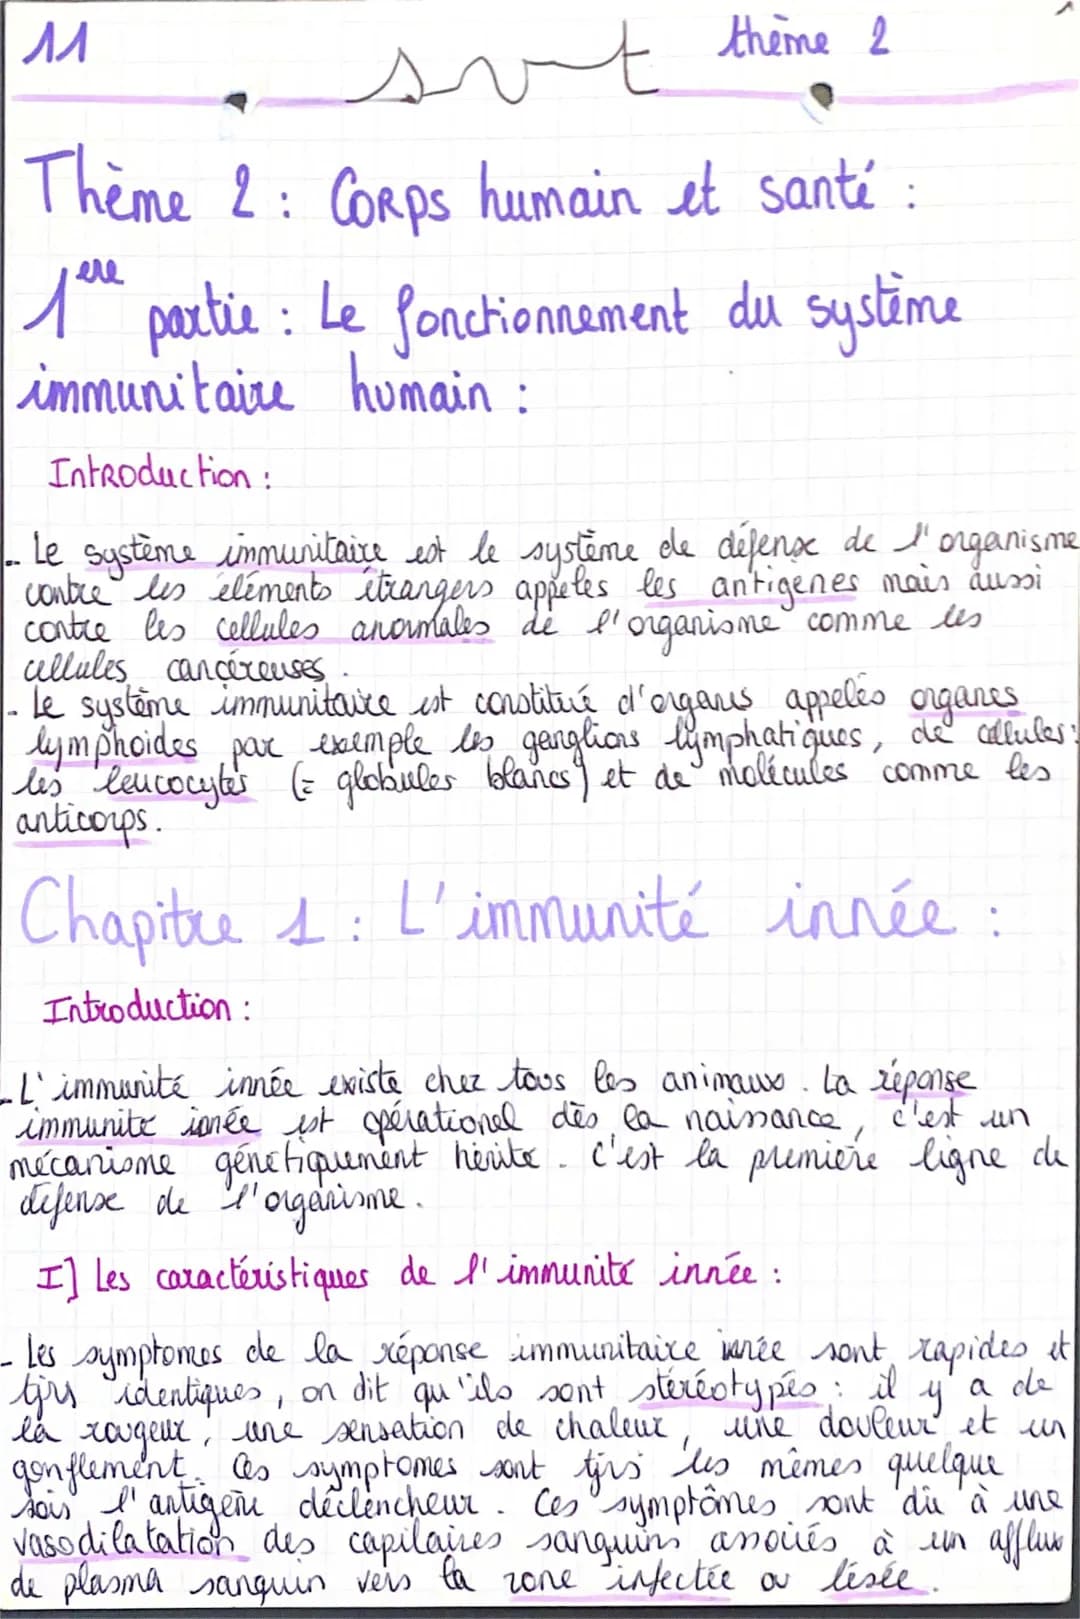 11
svt thème 2
Thème 2 : CORPS humain et santé :
1ere partie : Le fonctionnement du système
immunitaire humain :
Introduction :
- Le système immunitaire est le système de défense de l'organisme
contre les éléments étrangers appelés les antigènes mais aussi
contre les cellules anormales de l'organisme comme les
cellules cancéreuses.
- Le système immunitaire est constitué d'organes appelés organes
lymphoïdes par exemple les ganglions lymphatiques, de cellules :
les leucocytes (= globules blancs) et de molécules comme les
anticorps.
Chapitre 1 : L'immunité innée :
Introduction :
- L'immunité innée existe chez tous les animaux. La réponse
immunité innée est opérationel dès la naissance, c'est un
mécanisme génétiquement hérité. C'est la première ligne de
défense de l'organisme.
I] Les caractéristiques de l'immunité innée :
- Les symptomes de la réponse immunitaire innée sont rapides et
tjrs identiques, on dit qu'ils sont stéréotypés : il y a de
la rougeur, une sensation de chaleur, une douleur et un
gonflement. Ces symptomes sont tjrs les mêmes quelque
sois l'antigène déclencheur. Ces symptômes sont dû à une
vasodilatation des capilaires sanguins associés à un afflux
de plasma sanguin vers la zone infectée ou lésée.